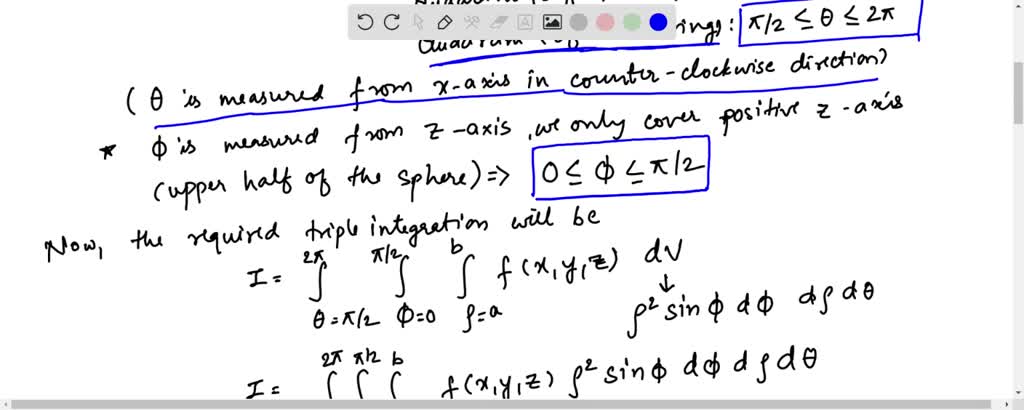 Quadrant rings: π/2 ≤ θ ≤ 2π
(θ is measured from x-axis in counter-clockwise direction)
* ϕ is measured from z-axis, we only cover positive z-axis
(upper half of the sphere) => 0 ≤ ϕ ≤ π/2
Now, the required triple integration will be
I = ∫_{θ=π/2}^{2π} ∫_{ϕ=0}^{π/2} ∫_{ρ=a}^{b} f(x,y,z) dV
↓
ρ² sinϕ dϕ dρ dθ
I = ∫^{2π} ∫^{π/2} ∫^{b} f(x,y,z) ρ² sinϕ dϕ dρ dθ